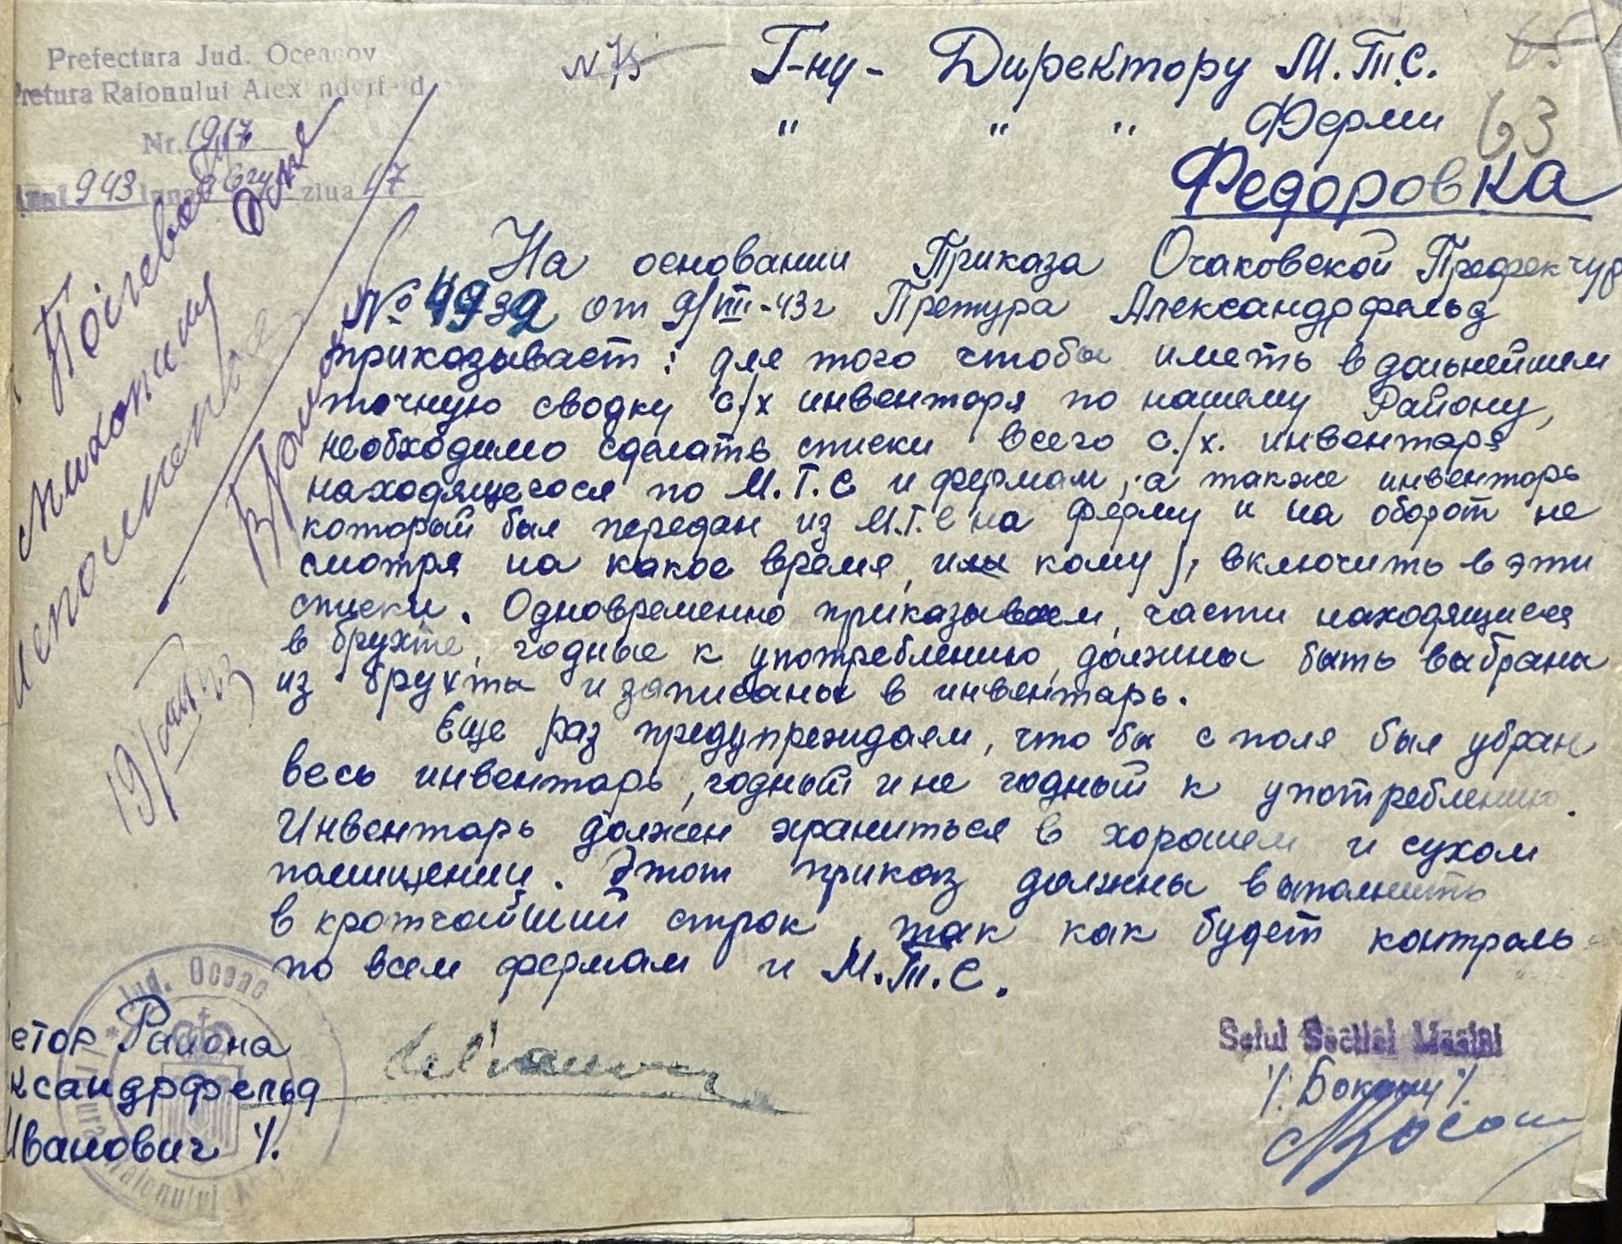 Prefectura Jud. Oceacov
Pretura Raionului Alex nderfeld
Nr. 1917
Anul 943 luna ziua 17
N 75
Г-ну - Директору М.Т.С.
" " " Ферми
65
63
Федоровка
На основании Приказа Очаковской Префектур
№ 4939 от 9/VIII-43г Претура Александрфельд
приказывает: для того чтобы иметь в дальнейшем
точную сводку с/х инвентаря по нашему Району,
необходимо сделать списки всего с./х. инвентаря
находящегося по М.Т.С и фермам, а также инвентарь
который был передан из М.Т.С на ферму и на оборот не
смотря на какое время, или кому, включить в эти
списки. Одновременно приказываем, части находящиеся
в брухте, годные к употреблению, должны быть выбраны
из брухты и записаны в инвентарь.
Еще раз предупреждаем, что бы с поля был убран
весь инвентарь, годный и не годный к употреблению.
Инвентарь должен храниться в хорошем и сухом
помищении. Этот приказ должны выполнить
в кротчайший строк, так как будет контроль
по всем фермам и М.Т.С.
етор Района
ксандрфельд
Иванович /.
Jud. Oceac
Raionului
Seful Sectiei Masini
/. Бокану /.
19/VIII 43